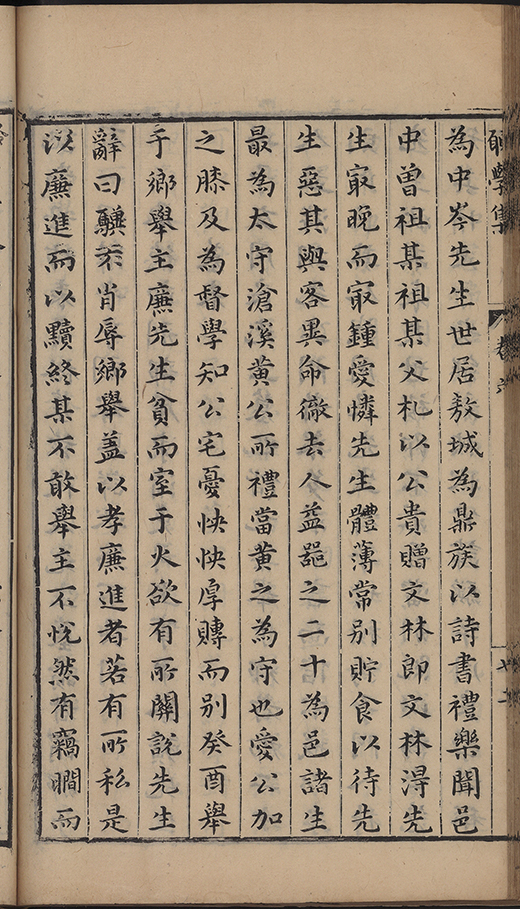 學集
為中岑先生世居敖城為鼎族以詩書禮樂聞邑
中曾祖某祖某父札以公貴贈文林郎文林淂先
生冣晚而冣鍾愛憐先生體薄常别貯食以待先
生惡其與客異命徹去人益噐之二十為邑諸生
最為太守滄溪黃公所禮當黃之為守也愛公加
之膝及為督學知公宅憂怏怏厚賻而别癸酉舉
于鄉舉主廉先生貧而室于火欲有所關說先生
辭曰驥不肖辱鄉舉盖以孝廉進者若有所私是
以廉進而以黷終某不敢舉主不悅然有竊瞷而